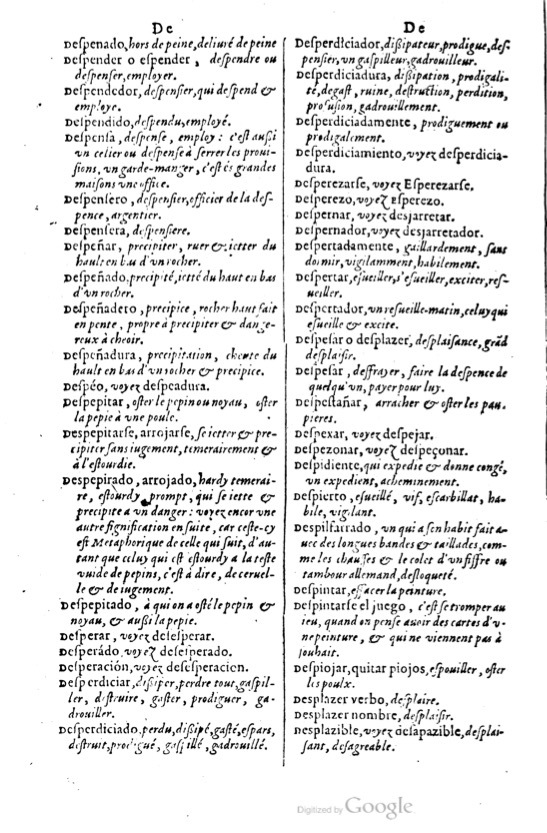 De
Deſpenado, hors de peine, deliuré de peine
Deſpender o eſpender, deſpendre ou
deſpenſer, employer.
Deſpendedor, deſpenſier, qui deſpend &
employe.
Deſpendido, deſpendu, employé.
Deſpenſa, deſpenſe, employ: c'eſt auſsi
vn celier ou deſpenſe à ſerrer les proui-
ſions, vn garde-manger, c'eſt és grandes
maiſons vne office.
Deſpenſero, deſpenſier, officier de la deſ-
pence, argentier.
Deſpenſera, deſpenſiere.
Deſpeñar, precipiter, ruer & ietter du
hault en bas d'vn rocher.
Deſpeñado, precipité, ietté du haut en bas
d'vn rocher.
Deſpeñadero, precipice, rocher haut fait
en pente, propre à precipiter & dange-
reux à cheoir.
Deſpeñadura, precipitation, cheute du
hault en bas d'vn rocher & precipice.
Deſpéo, voyez deſpeadura.
Deſpepitar, oſter le pepin ou noyau, oſter
la pepie à vne poule.
Deſpepitarſe, arrojarſe, ſe ietter & pre-
cipiter sans iugement, temerairement &
à l'eſtourdie.
Deſpepirado, arrojado, hardy temerai-
re, eſtourdy prompt, qui ſe iette &
precipite a vn danger: voyez encor vne
autre ſignification enſuite, car ceſte-cy
eſt Metaphorique de celle qui ſuit, d'au-
tant que celuy qui eſt eſtourdy a la teſte
vuide de pepins, c'eſt à dire, de ceruel-
le & de iugement.
Deſpepitado, à qui on a oſté le pepin &
noyau, & auſsi la pepie.
Deſperar, voyez deſeſperar.
Deſperádo, voyez deſeſperado.
Deſperación, voyez deſeſperacion.
Deſperdiciar, diſsiper, perdre tout, gaſpil-
ler, diſtruire, gaſter, prodiguer, ga-
drouiller.
Deſperdiciado, perdu, diſsipé, gaſté, eſpars,
diſtruit, prodigué, gaſpillé, gadrouillé.
De
Deſperdiciador, diſsipateur, prodigue, deſ-
penſier, vn gaſpilleur, gadrouilleur.
Deſperdiciadura, diſsipation, prodigali-
té, degaſt, ruine, deſtruction, perdition,
profuſion, gadrouillement.
Deſperdiciadamente, prodiguement ou
prodigalement.
Deſperdiciamiento, voyez deſperdicia-
dura.
Deſperezarſe, voyez Eſperezarſe.
Deſperezo, voyez Eſperezo.
Deſpernar, voyez deſjarretar.
Deſpernador, voyez deſjarretador.
Deſpertadamente, gaillardement, ſans
dormir, vigilamment, habilement.
Deſpertar, eſueiller, s'eſueiller, exciter, reſ-
ueiller.
Deſpertador, vn reſueille-matin, celuy qui
eſueille & excite.
Deſpeſar o deſplazer, deſplaiſance, grãd
deſplaiſir.
Deſpeſar, deffrayer, faire la deſpence de
quelqu'vn, payer pour luy.
Deſpeſtañar, arracher & oſter les pau-
pieres.
Deſpexar, voyez deſpejar.
Deſpezonar, voyez deſpeçonar.
Deſpidiente, qui expedie & donne congé,
vn expedient, acheminement.
Deſpierto, eſueillé, vif, eſcarbillat, ha-
bile, vigilant.
Deſpilfarrado, vn qui a ſon habit fait a-
uec des longues bandes & taillades, com-
me les chauſſes & le colet d'vn fiffre ou
tambour allemand, deſloqueté.
Deſpintar, effacer la peinture.
Deſpintarſe el juego, c'eſt ſe tromper au
ieu, quand on penſe auoir des cartes d'v-
ne peinture, & qui ne viennent pas à
ſouhait.
Deſpiojar, quitar piojos, eſpouiller, oſter
les poulx.
Desplazer verbo, deſplaire.
Desplazer nombre, deſplaiſir.
Desplazible, voyez deſapazible, deſplai-
ſant, deſagreable.
Digitized by Google